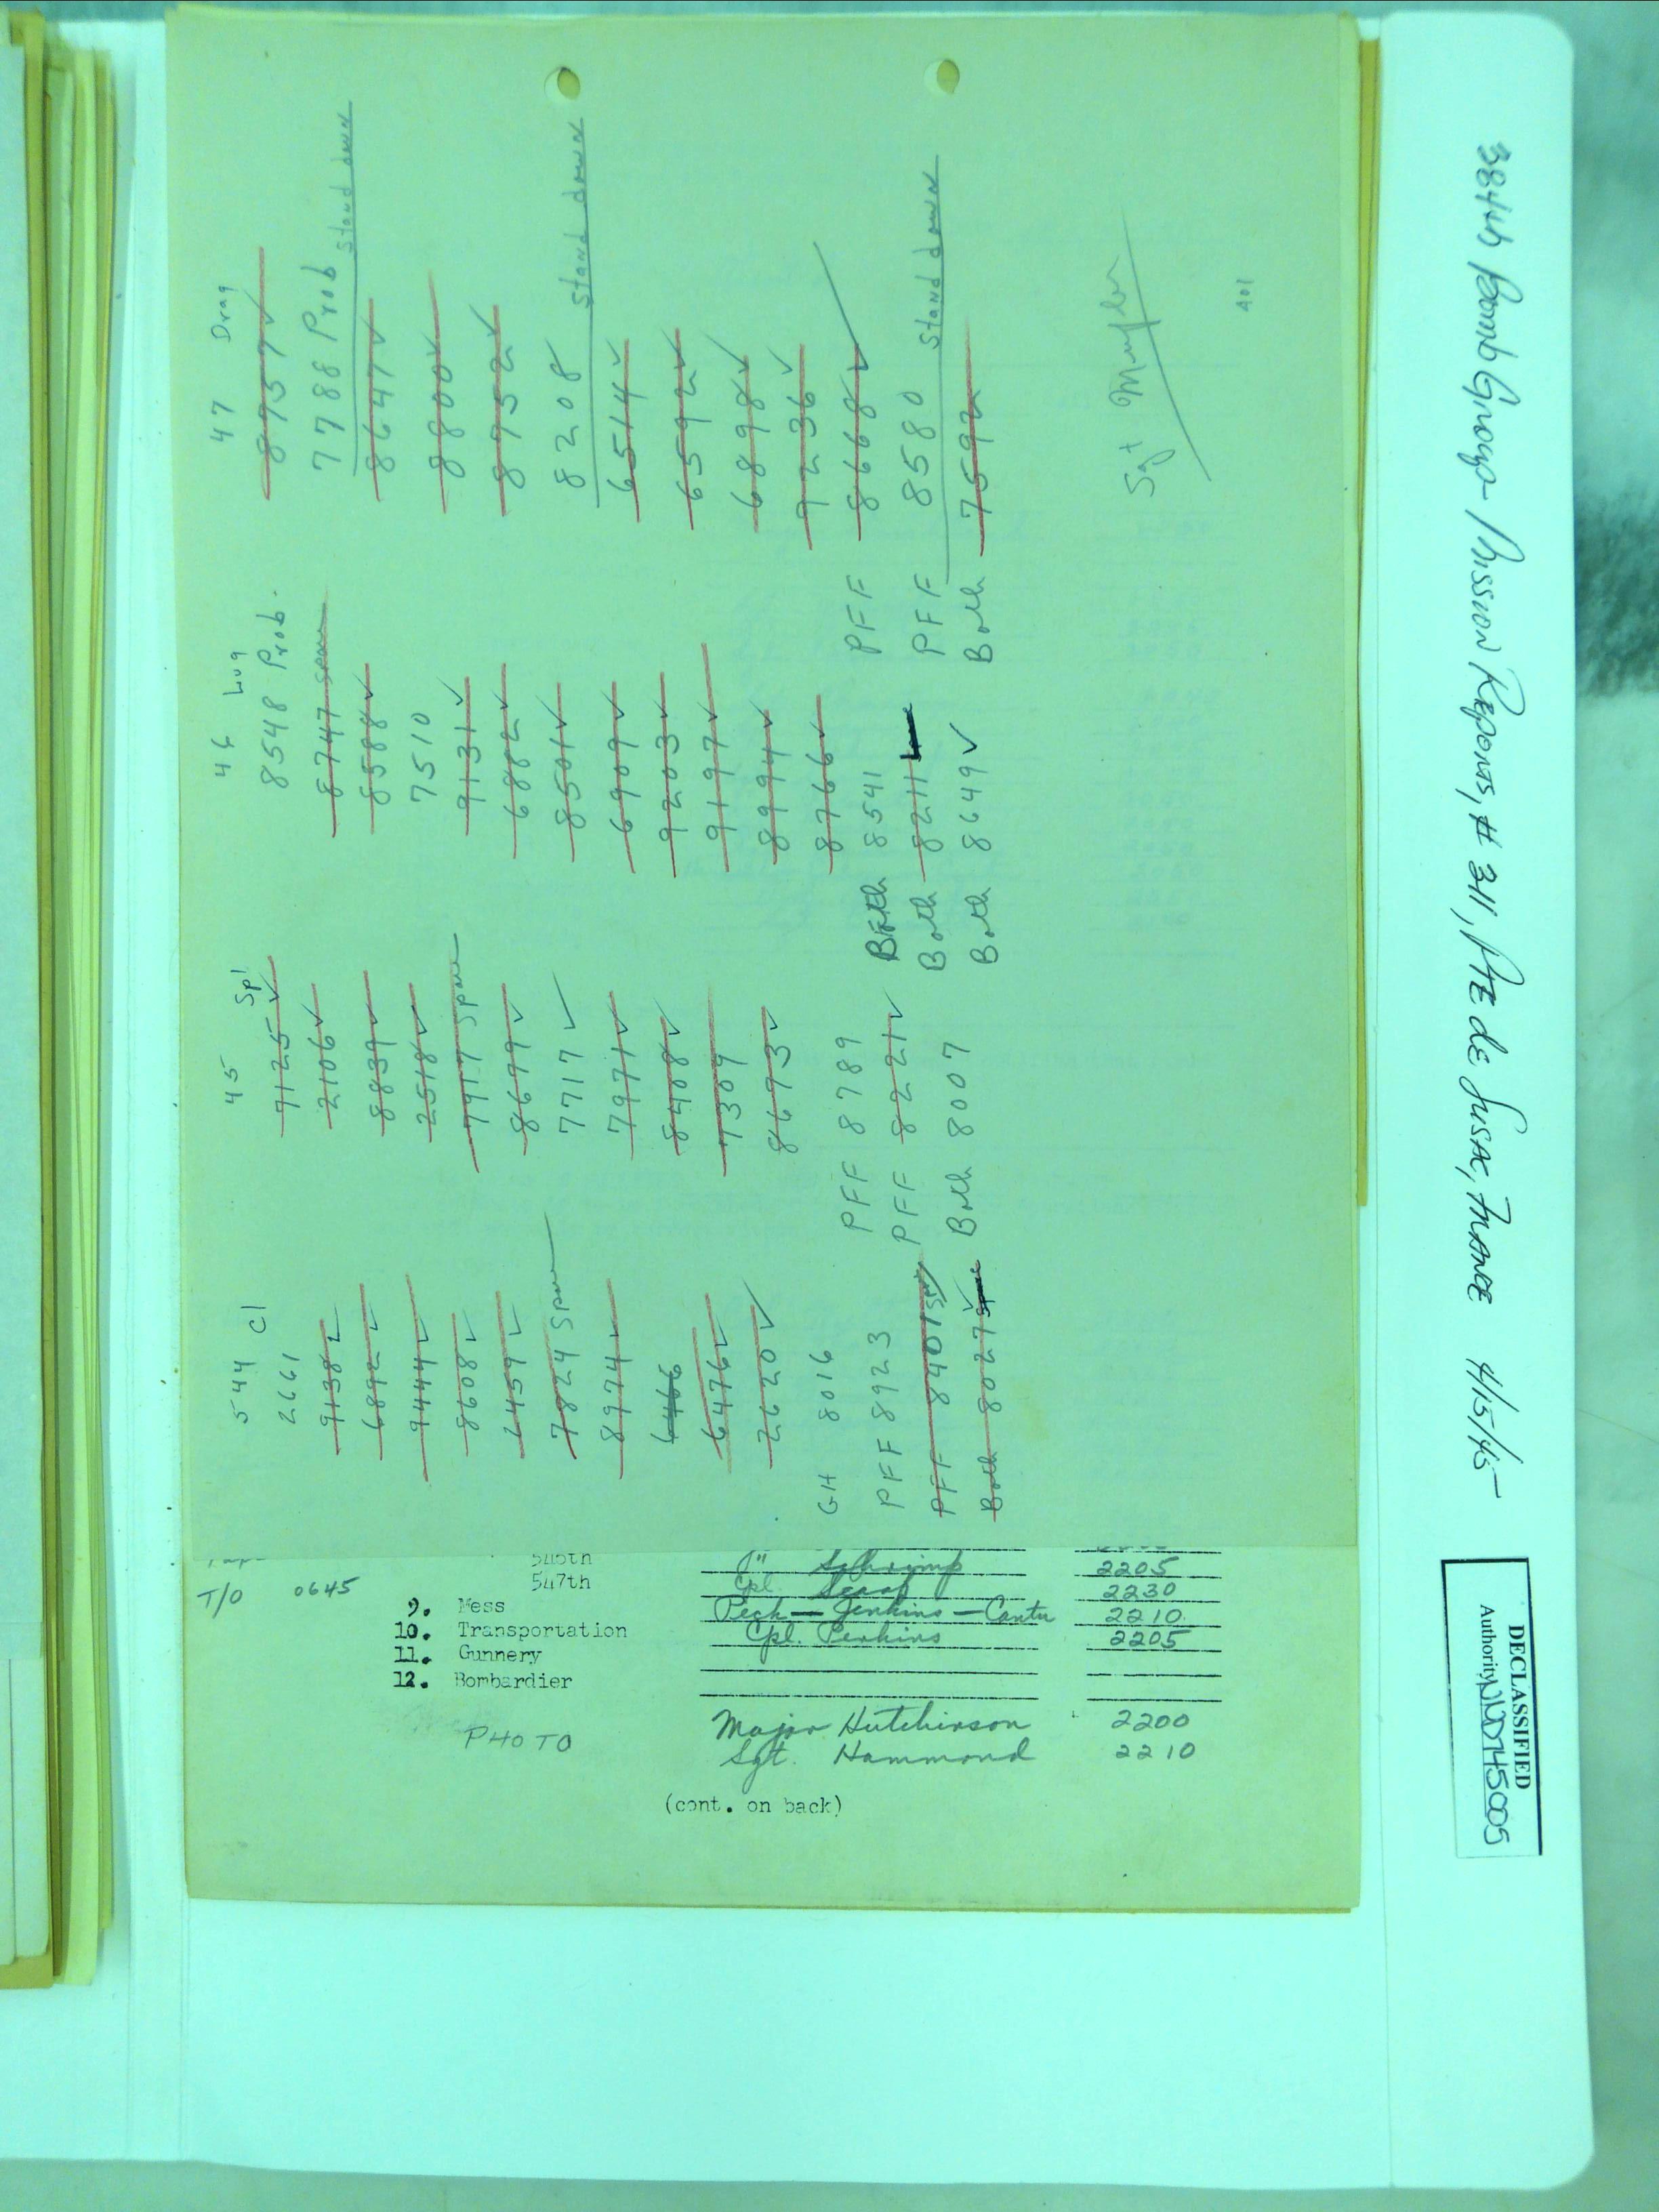 544 Cl
2661
9138 ✓
6892 ✓
9444 ✓
8608 ✓
6459 ✓
7824 Spare
8974 ✓
6466
6476 ✓
2620 ✓
GH 8016
PFF 8923
PFF 8401 Spr
Both 8027 ✓ Spare
45 Spl
9125 ✓
2106 ✓
8839 ✓
2518 ✓
7917 Spare
8679 ✓
7717 ✓
7971 ✓
8408 ✓
7309
8693 ✓
PFF 8789
PFF 8221 ✓
Both 8007
46 Lug
8548 Prob.
8747 Spare
8588 ✓
7510
9131 ✓
6882 ✓
8501 ✓
6909 ✓
9203 ✓
9197 ✓
8994 ✓
8766 ✓
Both 8541
Both 8211
Both 8649 ✓
47 Drag
8757 ✓
7788 Prob stand down
8647 ✓
8800 ✓
8752 ✓
8208 stand down
6514 ✓
6592 ✓
6898 ✓
9236 ✓
PFF 8668 ✓
PFF 8580 stand down
Both 7592
Sgt
401
546th " Schrimp 2205
T/O 0645 547th Cpl. 2230
9. Mess Peck — Jenkins — Cantu 2210
10. Transportation Cpl. Perkins 2205
11. Gunnery
12. Bombardier
PHOTO Major Hutchinson 2200
Sgt. Hammond 2210
(cont. on back)
384th Bomb Group - Mission Reports, # 311, Pte de Susac, France 4/15/45
DECLASSIFIED
Authority NND745005